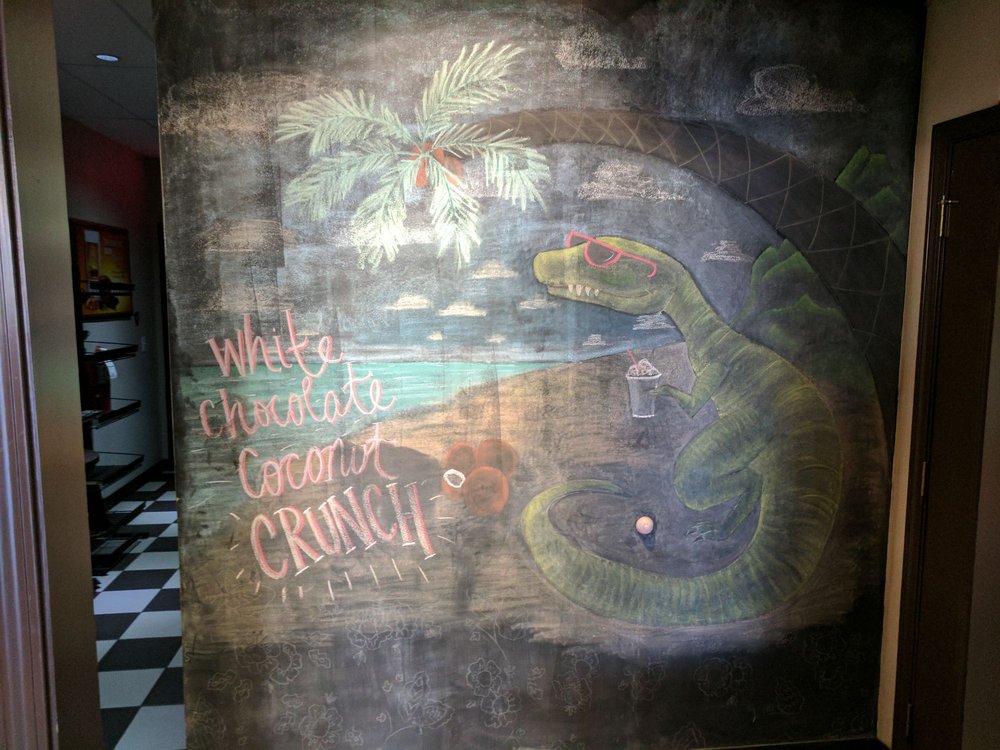 white
chocolate
coconut
CRUNCH